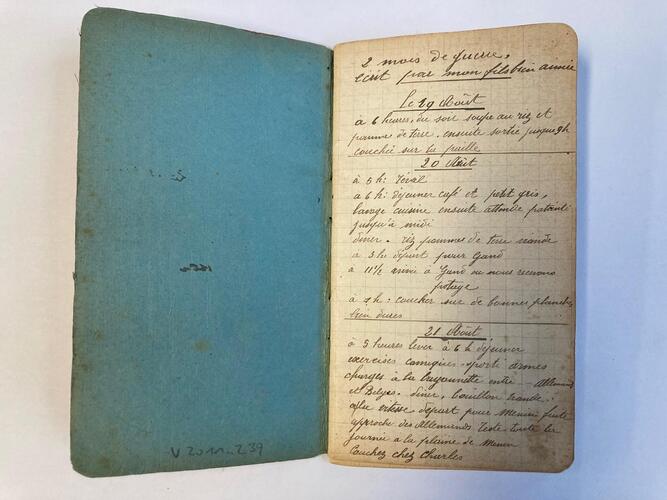 V 2011.239
2 mois de guerre,
écrit par mon fils bien aimée
Le 19 Août
a 6 heures, du soir soupe au riz et
pomme de terre. ensuite sortie jusque 9h
couchée sur la paille
20 Août
à 5h: réveil
a 6h: déjeuner café et petit gris,
lavage cuisine ensuite attende
jusqu'à midi
diner. riz pommes de terre viande
a 3h départ pour Gand
a 11½ arrivé a Gand ou nous recevons
potage
à 1h: coucher sur de bonnes planches
bien dures
21 Août
à 5 heures lever à 6h déjeuner
exercises sport armes
charges à la bayonnette entre Allemand
et Belges. diner, bouillon viande.
vitesse départ pour Menin suite
approche des Allemands reste toute la
journée a la plaine de Menin
Couchez chez Charles